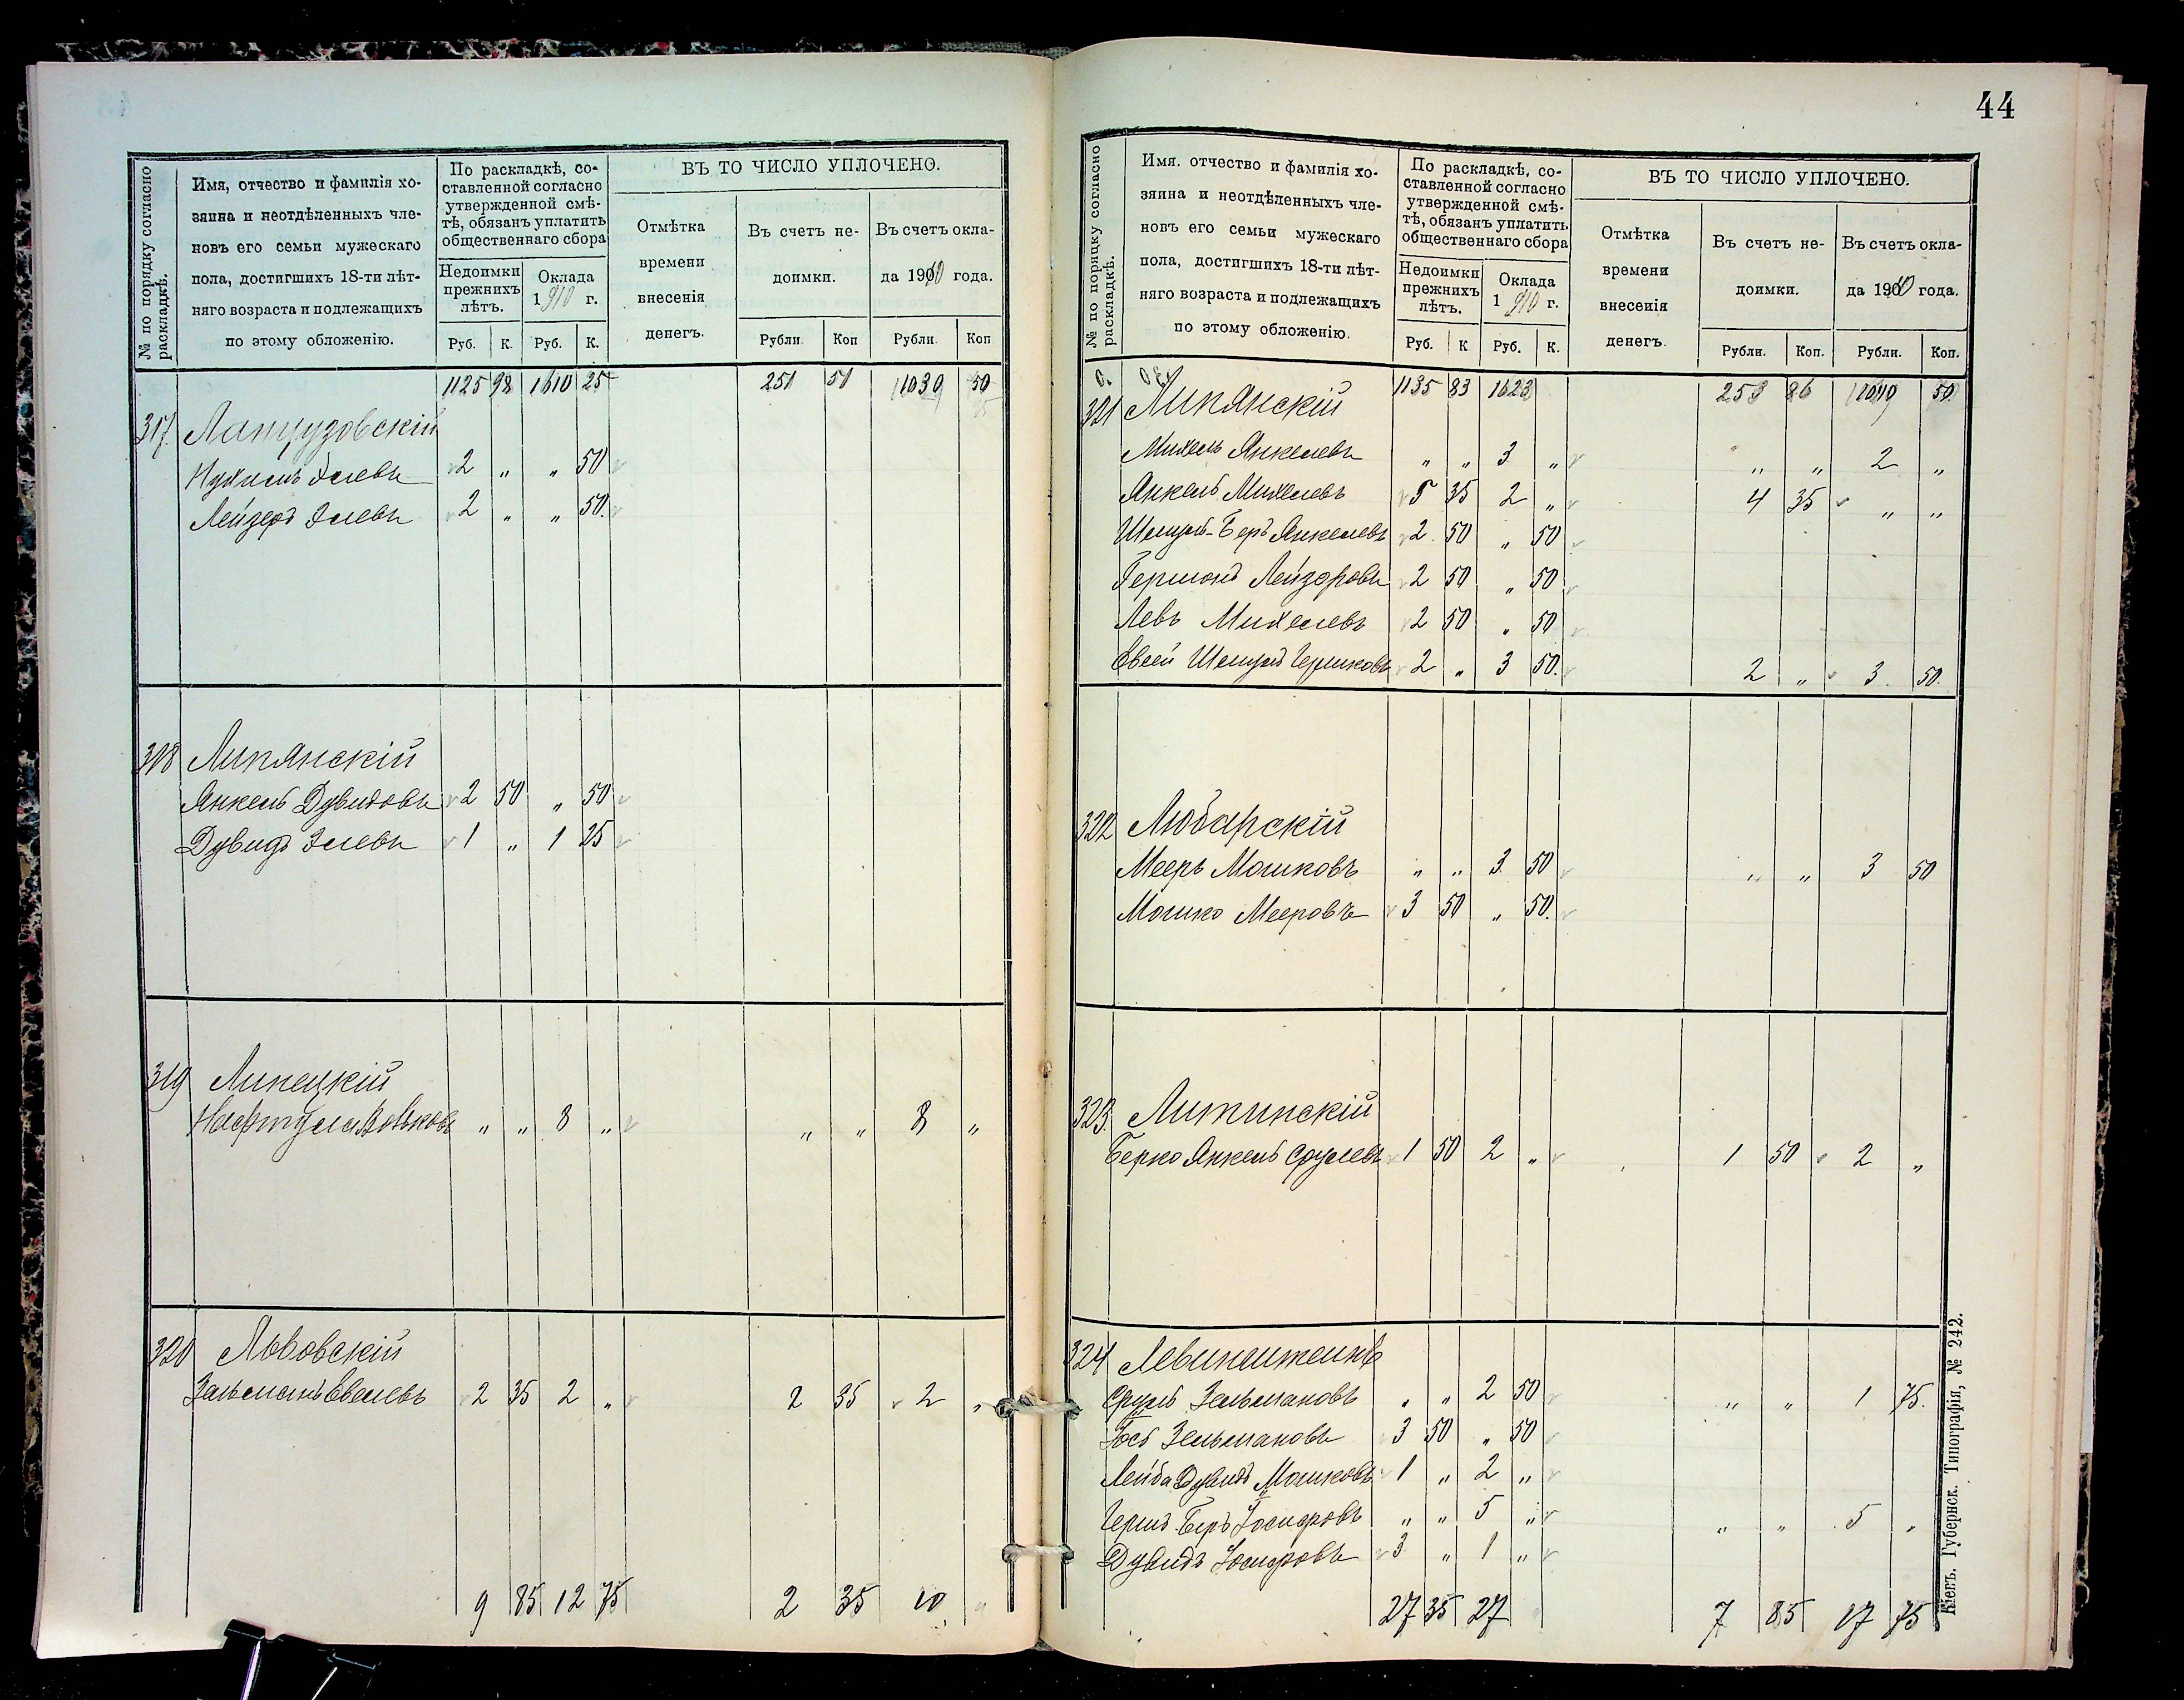 44
№ по порядку согласно раскладкѣ.
Имя, отчество и фамилія хо-
зяина и неотдѣленныхъ чле-
новъ его семьи мужескаго
пола, достигшихъ 18-ти лѣт-
няго возраста и подлежащихъ
по этому обложенію.
По раскладкѣ, со-
ставленной согласно
утвержденной смѣ-
тѣ, обязанъ уплатить
общественнаго сбора
Недоимки прежнихъ лѣтъ.
Оклада 1910 г.
ВЪ ТО ЧИСЛО УПЛОЧЕНО.
Отмѣтка
времени
внесенія
денегъ.
Въ счетъ не-
доимки.
Въ счетъ окла-
да 1910 года.
Руб. К. Руб. К. Рубли. Коп Рубли. Коп
1125 98 1610 25 251 51 1039 50
317.
Нухимъ Элевъ 2 „ „ 50
Лейзеръ Элевъ 2 „ „ 50.
318 Липянскій
Янкель Дувидовъ 2 50 „ 50
Дувидъ Элевъ 1 „ 1 25
319 Липецкій
Нафтула Вольковъ „ „ 8 „ „ „ 8 „
320 Львовскій
Зельманъ Евелевъ 2 35 2 „ 2 35 2 „
9 85 12 75 2 35 10
№ по порядку согласно раскладкѣ.
Имя, отчество и фамилія хо-
зяина и неотдѣленныхъ чле-
новъ его семьи мужескаго
пола, достигшихъ 18-ти лѣт-
няго возраста и подлежащихъ
по этому обложенію.
По раскладкѣ, со-
ставленной согласно
утвержденной смѣ-
тѣ, обязанъ уплатить
общественнаго сбора
Недоимки прежнихъ лѣтъ.
Оклада 1910 г.
ВЪ ТО ЧИСЛО УПЛОЧЕНО.
Отмѣтка
времени
внесенія
денегъ.
Въ счетъ не-
доимки.
Въ счетъ окла-
да 1910 года.
Руб. К Руб. К. Рубли. Коп. Рубли. Коп.
1135 83 1623 253 86 1049 50
321 Липянскій
Михель Янкелевъ „ „ 3 „ „ „ 2 „
Янкель Михелевъ 5 35 2 „ 4 35 „ „
Шмуль-Беръ Янкелевъ 2 50 „ 50
Гершонъ Лейзоровъ 2 50 „ 50
Левъ Михелевъ 2 50 „ 50
Евсей Шмуль Гершковъ 2 „ 3 50. 2 „ 3 50.
322 Любарскій
Мееръ Мошковъ „ „ 3 50 „ „ 3 50
Мошко Мееровъ 3 50 „ 50.
323. Литинскій
Берко Янкель Срулевъ 1 50 2 „ 1 50 2 „
324 Левинштейнъ
Сруль Зельмановъ „ „ 2 50 „ „ 1 75.
Іось Зельмановъ 3 50 „ 50
Лейба Дувидъ Мошковъ 1 „ 2 „
Гершъ Беръ Іосифовъ „ „ 5 „ „ „ 5 „
Дувидъ Іосифовъ 3 „ 1 „
27 35 27 7 85 17 75
Кіевъ. Губернск. Типографія, № 242.